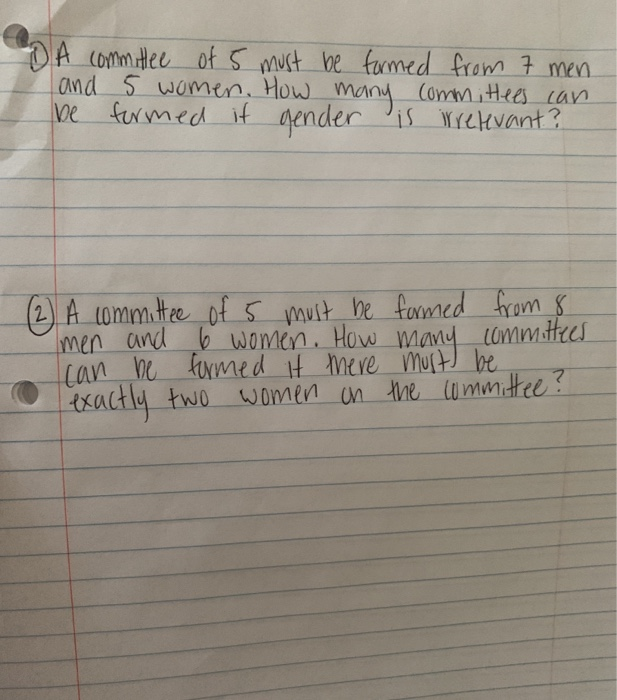 ① A committee of 5 must be formed from 7 men
and 5 women. How many committees can
be formed if gender is irrelevant?
② A committee of 5 must be formed from 8
men and 6 women. How many committees
can be formed if there must be
exactly two women on the committee?